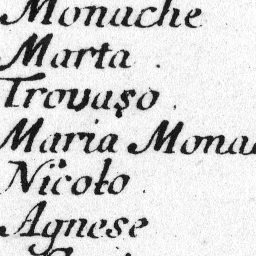 Monache
Marta .
Trovaso .
Maria Mona
Nicolo .
Agnese